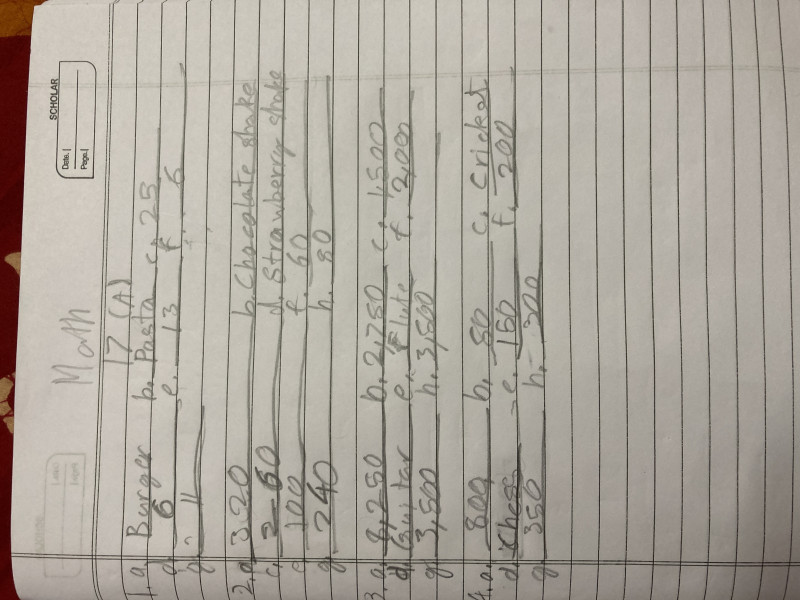 SCHOLAR
Date.
Page.
Math
17 (A)
1. a. Burger b. Pasta c. 25
d. 6 e. 13 f. 5
g. 11
2. a. 320 b. Chocolate shake
c. 260 d. Strawberry shake
e. 100 f. 60
g. 240 h. 80
3. a. 8,250 b. 2,750 c. 1,500
d. Guitar e. Flute f. 2,000
g. 3,500 h. 3,500
4. a. 800 b. 50 c. Cricket
d. Chess e. 150 f. 200
g. 350 h. 300